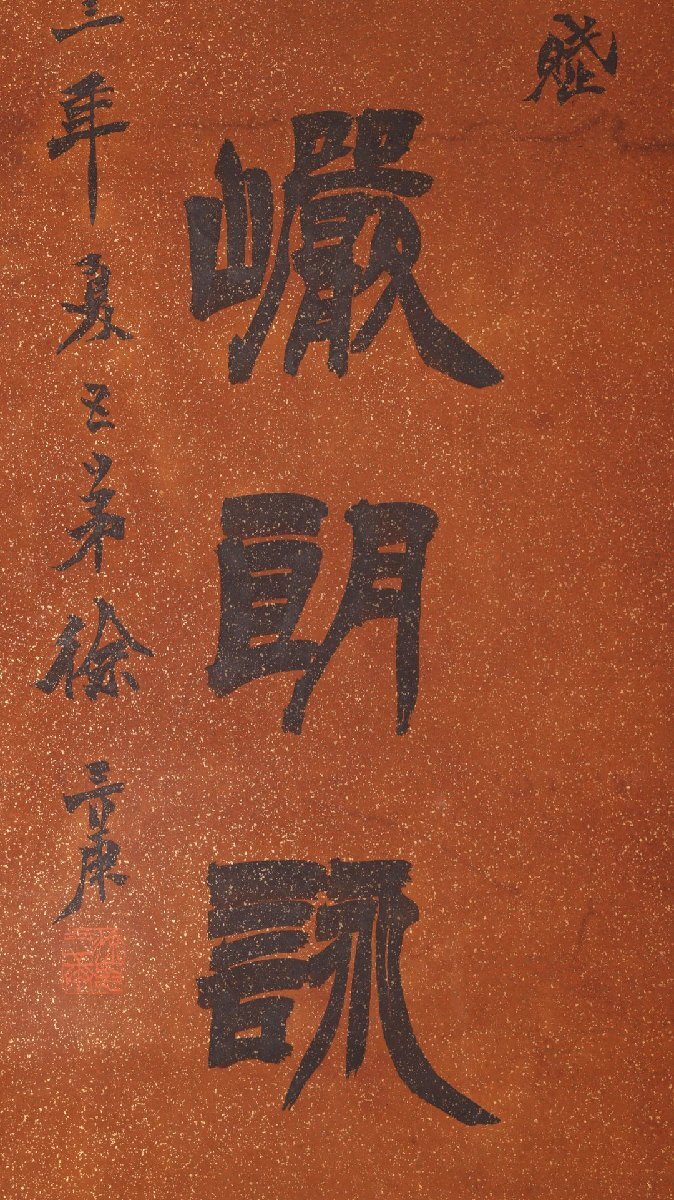 巖朗詠
三年夏五弟徐三庚